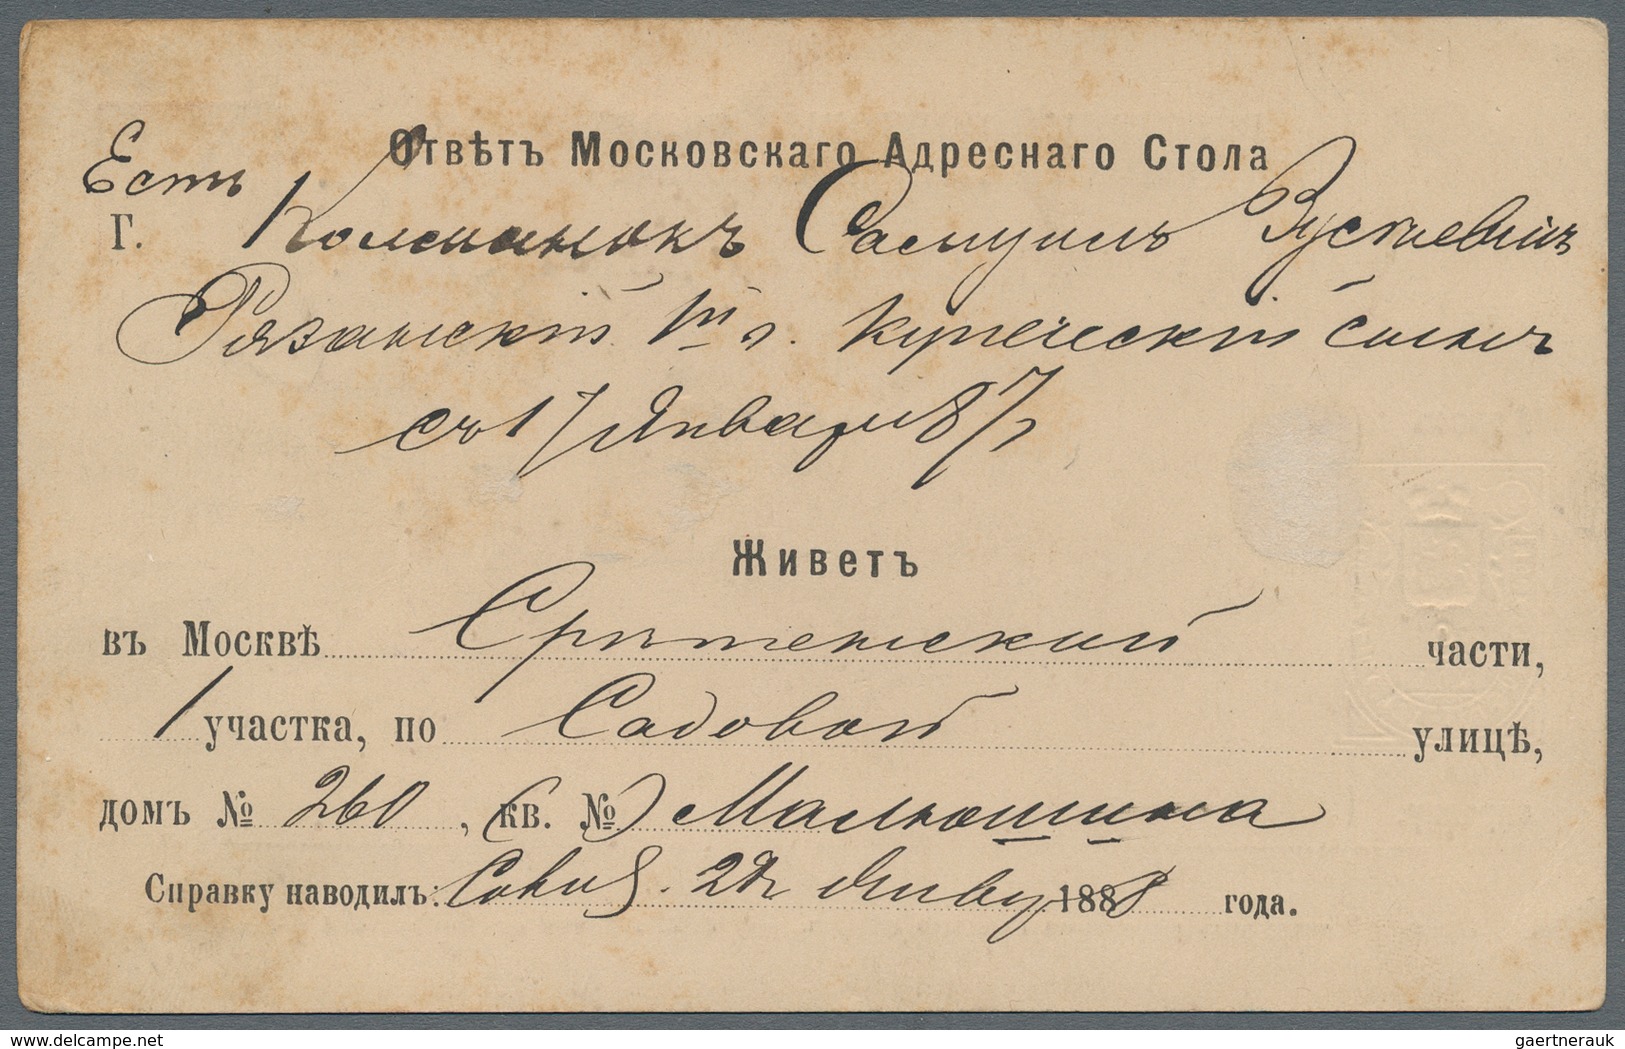 Отвѣтъ Московскаго Адреснаго Стола
Есть
Г. Колманокъ Самуилъ
Рязанскій 1й г. Купеческій сынъ
съ 17 Января 87 г
Живетъ
въ Москвѣ Срѣтенский части,
1 участка, по Садовой улицѣ,
домъ № 260, кв. № Малюшина
Справку наводилъ: 22 Янву 1888 года.
delcampe.net
gaertnerauk